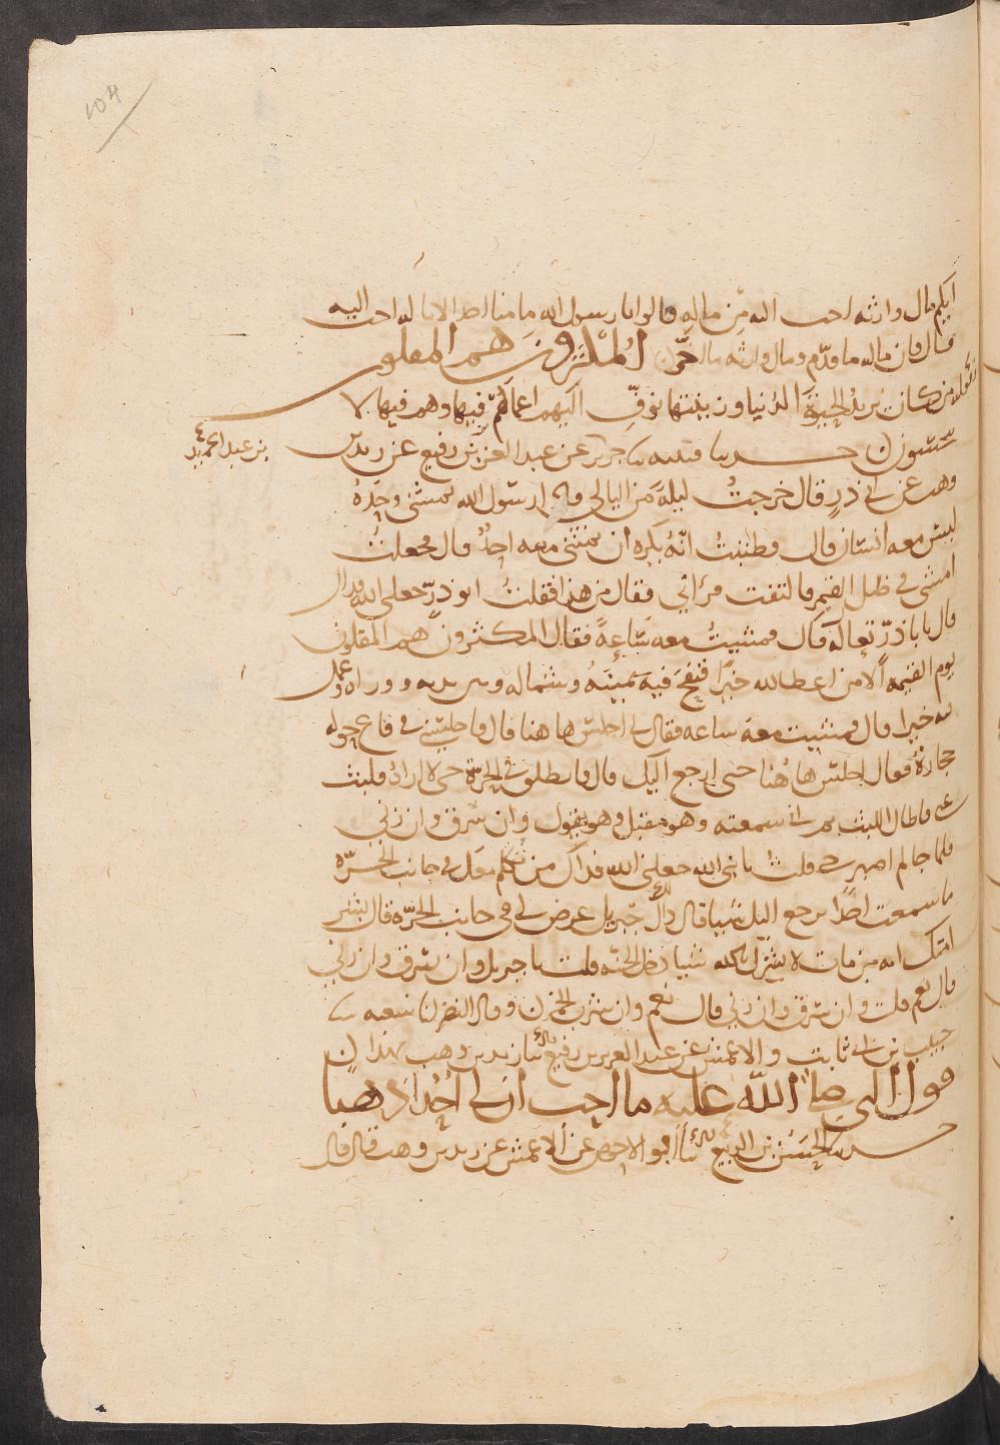 104
ايكم مال وارثه احب اليه من ماله قالوا يا رسول الله ما منا احد الا ماله احب اليه
قال فان ماله ما قدّم ومال وارثه ما اخّر المكثرون هم المقلون
وقوله من كان يريد الحيوة الدنيا وزينتها نوفّ اليهم اعمالهم فيها وهم فيها لا
يبخسون حدثنا قتيبة نا جرير عن عبد العزيز بن رفيع عن زيد بن
بن عبد الحميد
وهب عن ابي ذر قال خرجت ليلة من الليالي فاذا رسول الله يمشي وحده
ليس معه انسان قال فظننت انه يكره ان يمشي معه احد قال فجعلت
امشي في ظل القمر فالتفت فرآني فقال من هذا فقلت ابو ذرّ جعلني الله فداك
قال يا با ذرّ تعاله قال فمشيت معه ساعة فقال المكثرون هم المقلون
يوم القيمة الا من اعطاه الله خيرا فنفح فيه يمينه وشماله وبين يديه ووراه وعمل
فيه خيرا قال فمشيت معه ساعة فقال لي اجلس ها هنا قال فاجلسني في قاع حوله
حجارة فقال اجلس ها هنا حتى ارجع اليك قال فانطلق في الحرة حتى لا اراه فلبث
عني فاطال اللبث ثم اني سمعته وهو مقبل وهو يقول وان سرق وان زنى
فلما جا لم اصبر حتى قلت يا نبي الله جعلني الله فداك من تكلم في جانب الحرّة
ما سمعت احدا يرجع اليك شيا قال ذاك جبريل عرض لي في جانب الحرّة قال بشر
امتك انه من مات لا يشرك بالله شيا دخل الجنة قلت يا جبريل وان سرق وان زنى
قال نعم قلت وان سرق وان زنى قال نعم وان شرب الخمر وقال النضر انا شعبة نا
حبيب بن ابي ثابت والاعمش عن عبد العزيز بن رفيع نا زيد بن وهب بهذا
قول النبي صلى الله عليه ما احب ان لي احدا ذهبا
حدثنا الحسن بن الربيع نا ابو الاحوص عن الاعمش عن زيد بن وهب قال قال